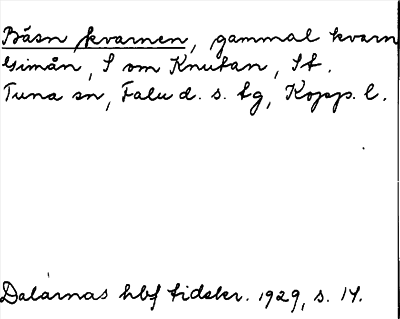 Båsn kvarnen, gammal kvarn
Gimån, S om Knutan, St.
Tuna sn, Falu d. s. tg, Kopp. l.
Dalarnas hbf tidskr. 1929, s. 14.